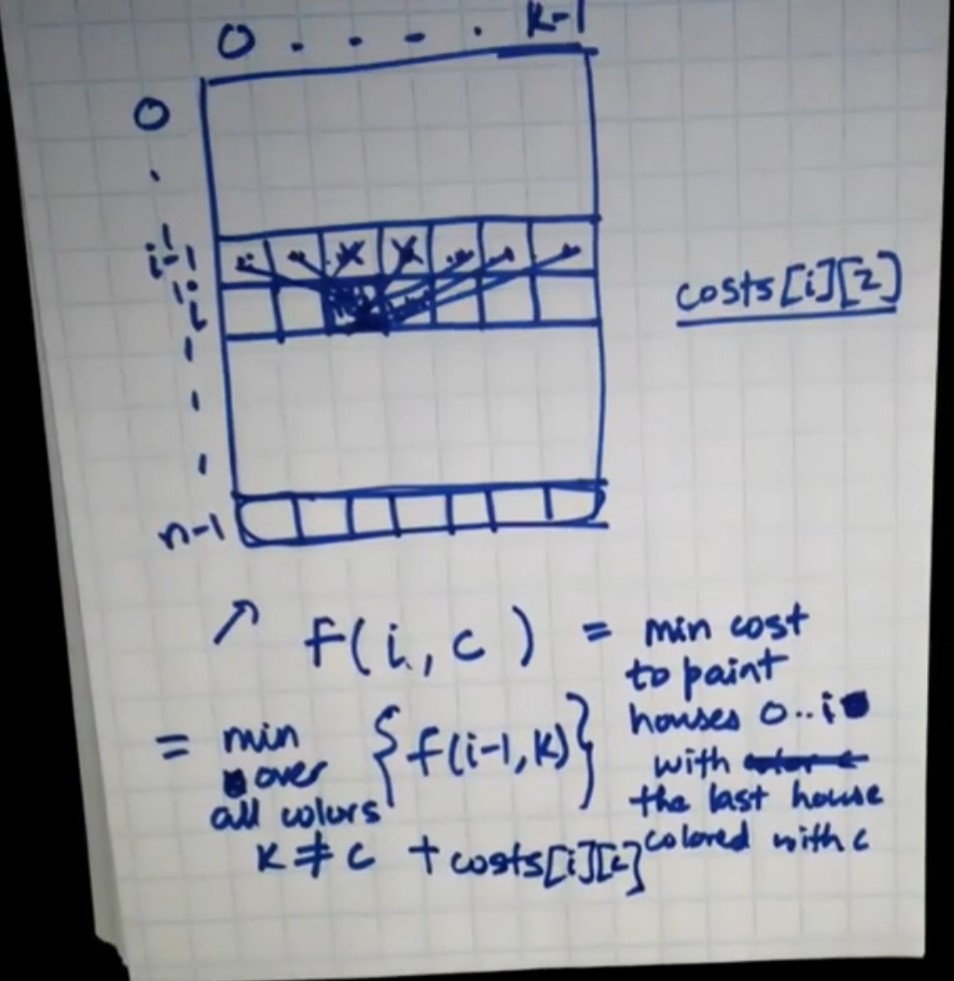 0 . . . . k-1
0
.
i-1
i
n-1
costs[i][2]
f(i, c) = min cost
to paint
houses 0..i
with
the last house
colored with c
= min over all colors k ≠ c {f(i-1, k)}
+ costs[i][c]